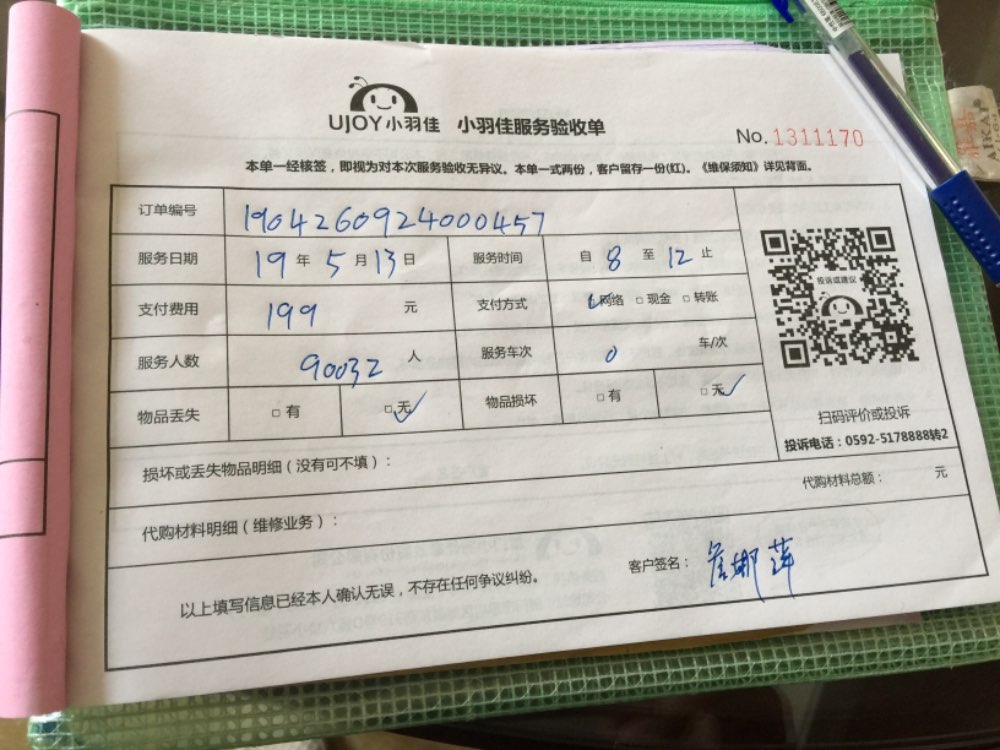 UJOY小羽佳 小羽佳服务验收单
No. 1311170
本单一经核签，即视为对本次服务验收无异议。本单一式两份，客户留存一份(红)。《维保须知》详见背面。
订单编号 1904260924000457
服务日期 19年5月13日 服务时间 自8至12止
支付费用 199元 支付方式 ☑网络 □现金 □转账
服务人数 90032人 服务车次 0 车/次
物品丢失 □有 ☑无 物品损坏 □有 ☑无
投诉或建议
扫码评价或投诉
投诉电话：0592-5178888转2
损坏或丢失物品明细（没有可不填）：
代购材料总额： 元
代购材料明细（维修业务）：
以上填写信息已经本人确认无误，不存在任何争议纠纷。
客户签名：詹娜萍